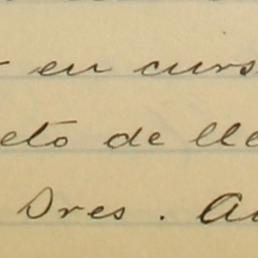 en curs
eto de lle
Dres. Au